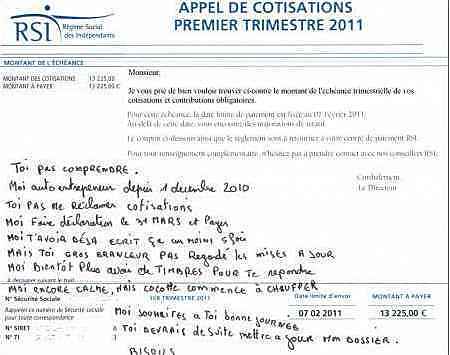 RSI
Régime Social
des Indépendants
APPEL DE COTISATIONS
PREMIER TRIMESTRE 2011
MONTANT DE L'ÉCHÉANCE
MONTANT DES COTISATIONS 13 225,00
MONTANT A PAYER 13 225,00 €
Monsieur,
Je vous prie de bien vouloir trouver ci-contre le montant de l'échéance trimestrielle de vos
cotisations et contributions obligatoires.
Pour cette échéance, la date limite de paiement est fixée au 07 Février 2011.
Au delà de cette date, vous encourez des majorations de retard.
Le coupon ci-dessous ainsi que le règlement sont à retourner à votre centre de paiement RSI.
Pour tout renseignement complémentaire, n'hésitez pas à prendre contact avec nos conseillers RSI.
Cordialement.
Le Directeur
Toi PAS COMPRENDRE.
Moi autoentrepreneur depuis 1 décembre 2010
Toi PAS ME Réclamer cotisations
Moi Faire déclaration le 31 MARS et Payer
Moi T'AVOIR DÉJA ECRIT ça au moins 5 fois
MAIS Toi GROS BRANLEUR PAS Regarder les mises A JOUR
Moi Bientôt Plus avoir de TIMBRES POUR Te repondre
A découper suivant le trait
Moi ENCORE CALME, MAIS cocotte commence à CHAUFFER
N° Sécurité Sociale
Rappelez ce numéro de Sécurité sociale
pour toute correspondance
N° SIRET
N° TI
1ER TRIMESTRE 2011
Date limite d'envoi
MONTANT A PAYER
07 02 2011
13 225,00 €
Moi souhaiter à Toi bonne journée
Toi DEVRAIS de suite mettre à jour MON DOSSIER.
BISOUS